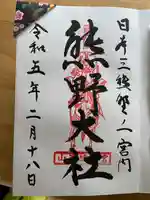 日本三熊野ノ一宮内
熊野大社
令和五年二月十八日